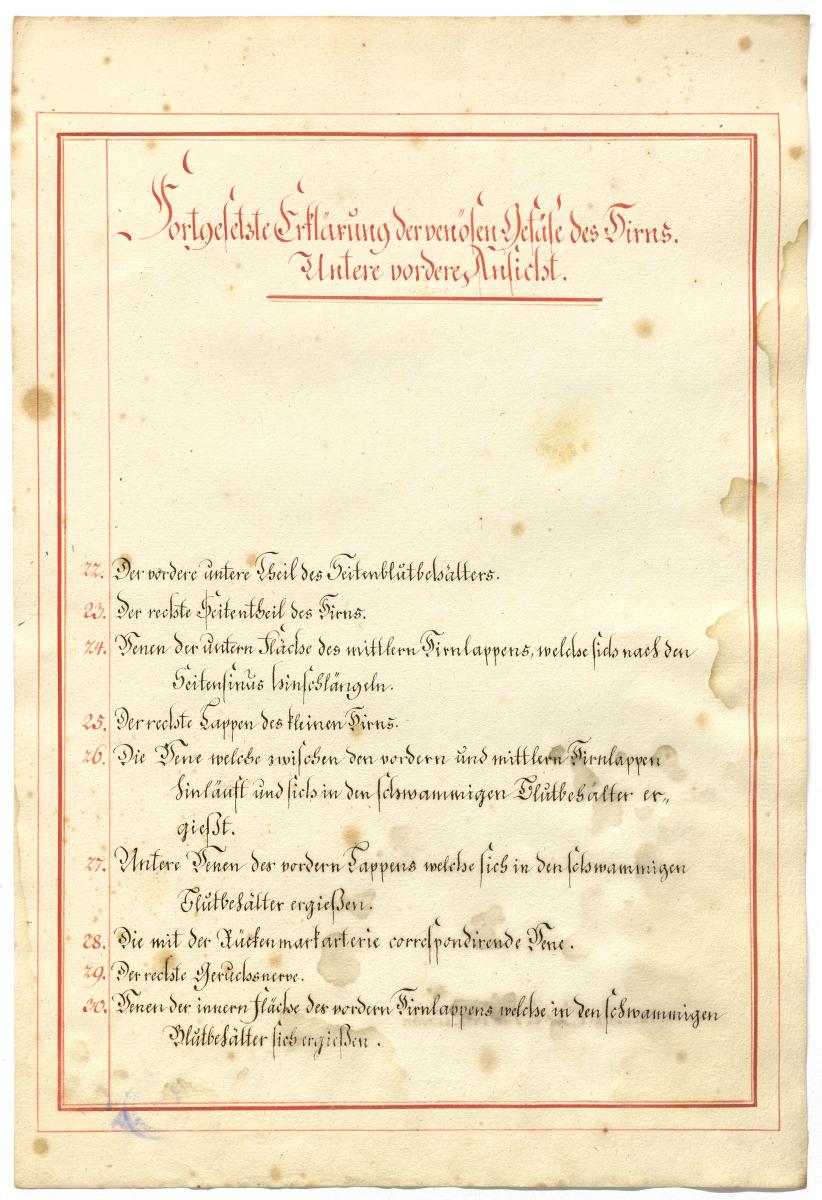 Fortgesetzte Erklärung der venösen Gefäße des Hirns.
Untere vordere Ansicht.
22. Der vordere untere Theil des Seitenblutbehälters.
23. Der rechte Seitentheil des Hirns.
24. Venen der untern Fläche des mittlern Hirnlappens, welche sich nach den
Seitensinus hinschlängeln.
25. Der rechte Lappen des kleinen Hirns.
26. Die Vene welche zwischen den vordern und mittlern Hirnlappen
hinläuft und sich in den schwammigen Blutbehälter er„
gießt.
27. Untere Venen des vordern Lappens welche sich in den schwammigen
Blutbehälter ergießen.
28. Die mit der Rückenmarkarterie correspondirende Vene.
29. Der rechte Geruchsnerve.
30. Venen der innern Fläche des vordern Hirnlappens welche in den schwammigen
Blutbehälter sich ergießen.